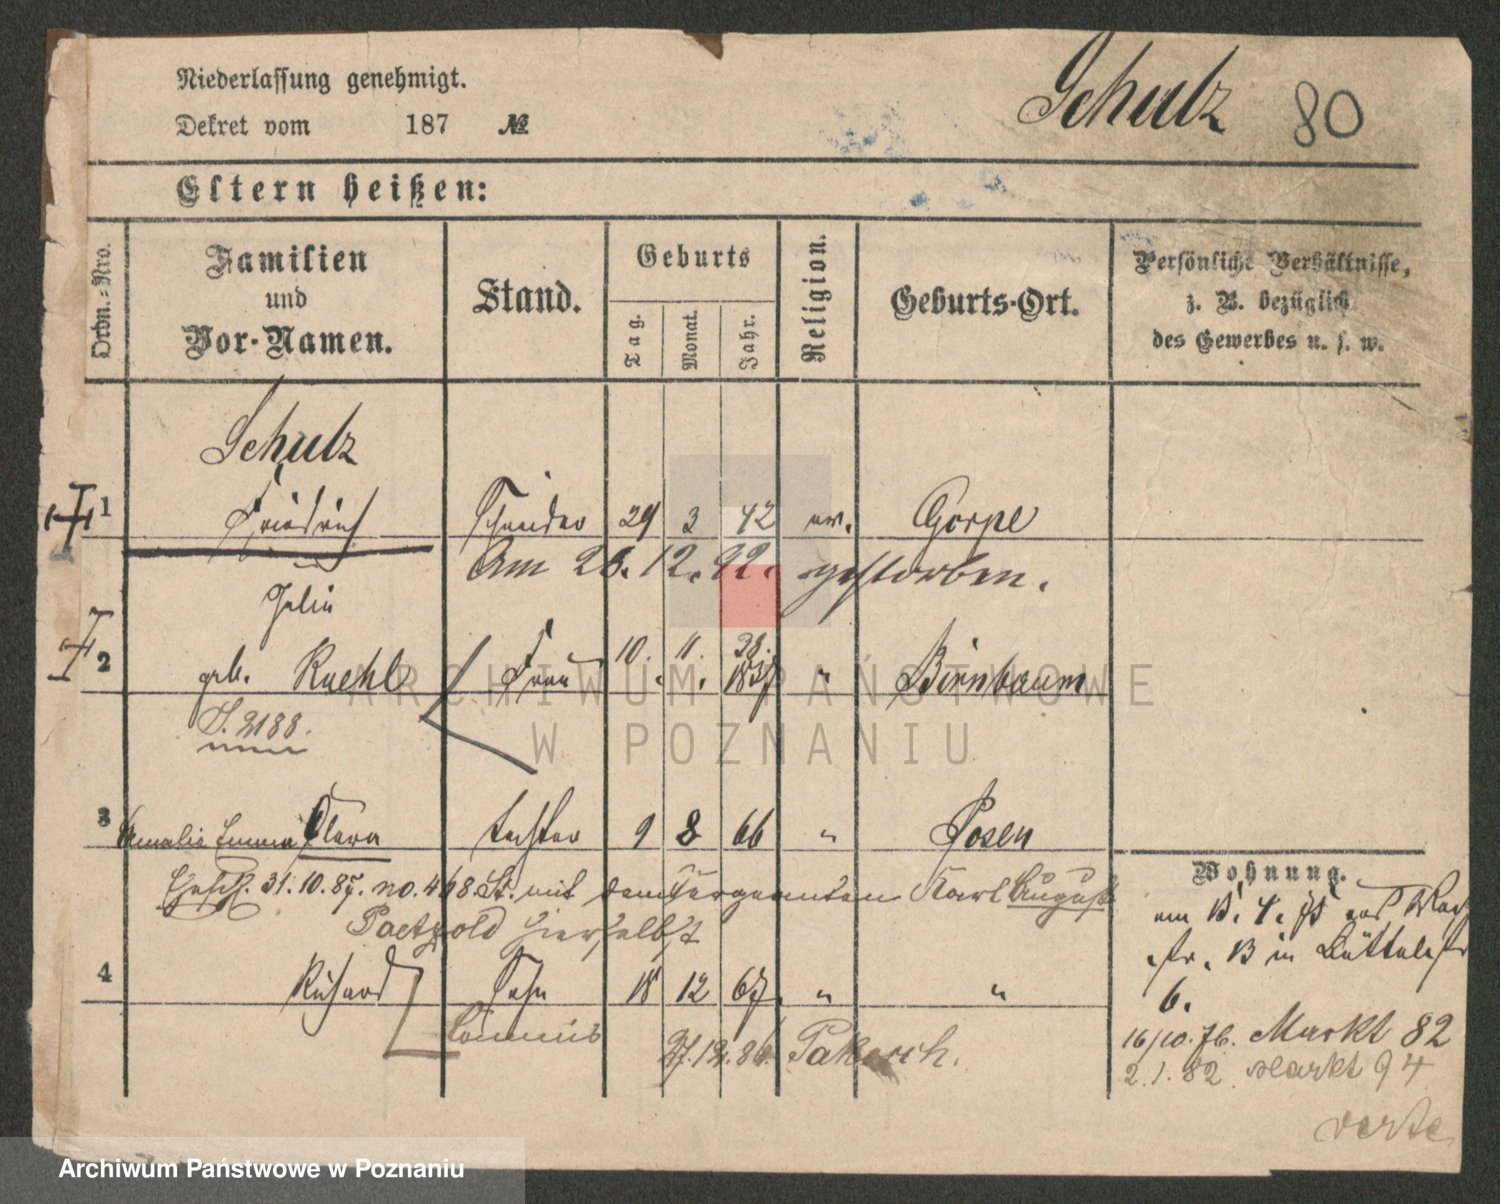 Niederlassung genehmigt.
Dekret vom 187 №
Schulz 80
Eltern heißen:
Ordn.-Nro.
Familien und Vor-Namen.
Stand.
Geburts
Tag.
Monat.
Jahr.
Religion.
Geburts-Ort.
Persönliche Verhältnisse,
z. B. bezüglich
des Gewerbes u. s. w.
Schulz
1 Friedrich Schneider 29 3 42 ev. Gorpe
Am 26.12.92. gestorben.
Julie
2 geb. Kuehl Frau 10. 11. 38. 1837 " Birnbaum
S. 2188.
3 Amalie Emma Clara Tochter 9 8 66 " Posen
Ehesch. 31.10.87. no. 468 St. mit dem Sergeanten Karl August
Paetzold hierselbst
4 Richard Sohn 18 12 67. " "
Commis 27.12.86 Pakosch.
Wohnung.
am 15.4.75
str. 13 in Büttelstr
6.
16/10.76. Markt 82
2.1.82 Markt 94
verte
ARCHIWUM PAŃSTWOWE
W POZNANIU
Archiwum Państwowe w Poznaniu